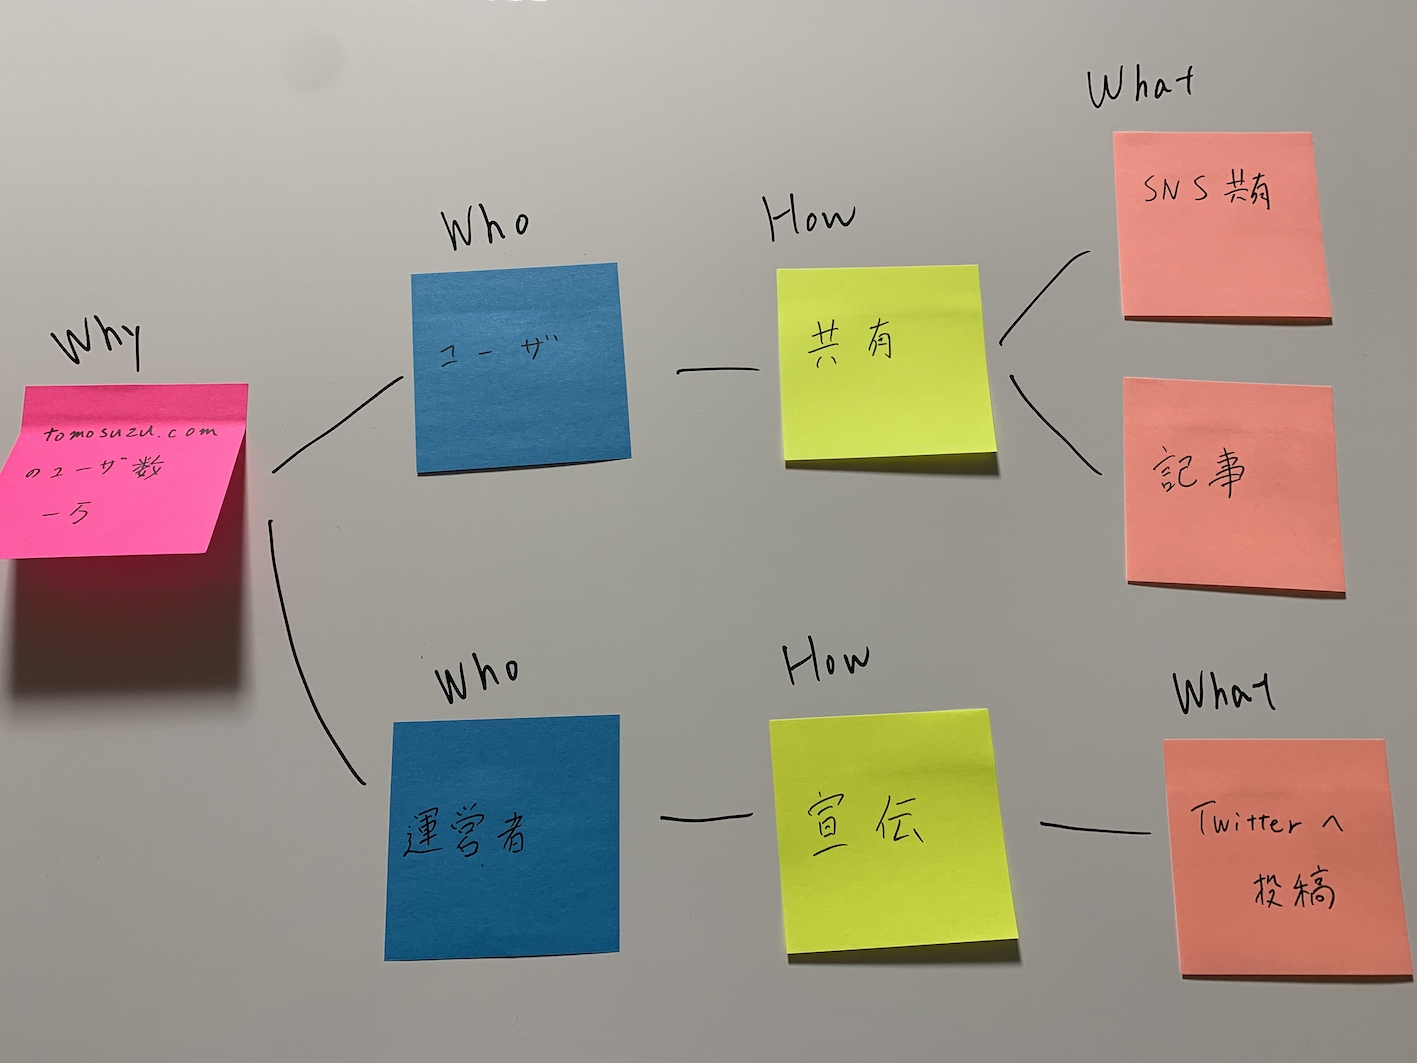 Why
tomosuzu.com
のユーザ数
一万
Who
ユーザ
How
共有
What
SNS共有
記事
Who
運営者
How
宣伝
What
Twitterへ
投稿